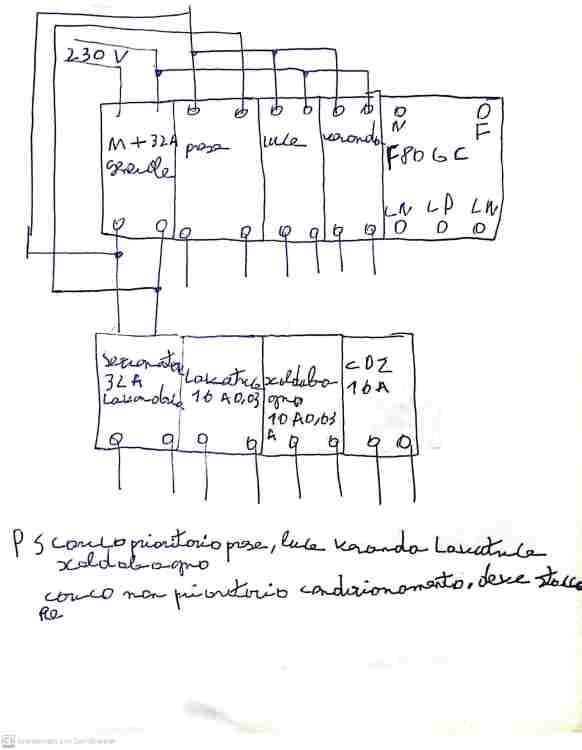 230 V
M + 32A
generale
prese
luce
veranda
N
F
F80GC
LN LP LN
sezionatore
32 A
Lavanderia
Lavatrice
16 A 0,03
xcaldaba
gno
10 A 0,03
A
CDZ
16A
PS carico prioritario prese, luce veranda Lavatrice
xcaldabagno
carico non prioritario condizionamento, deve stacca
Re